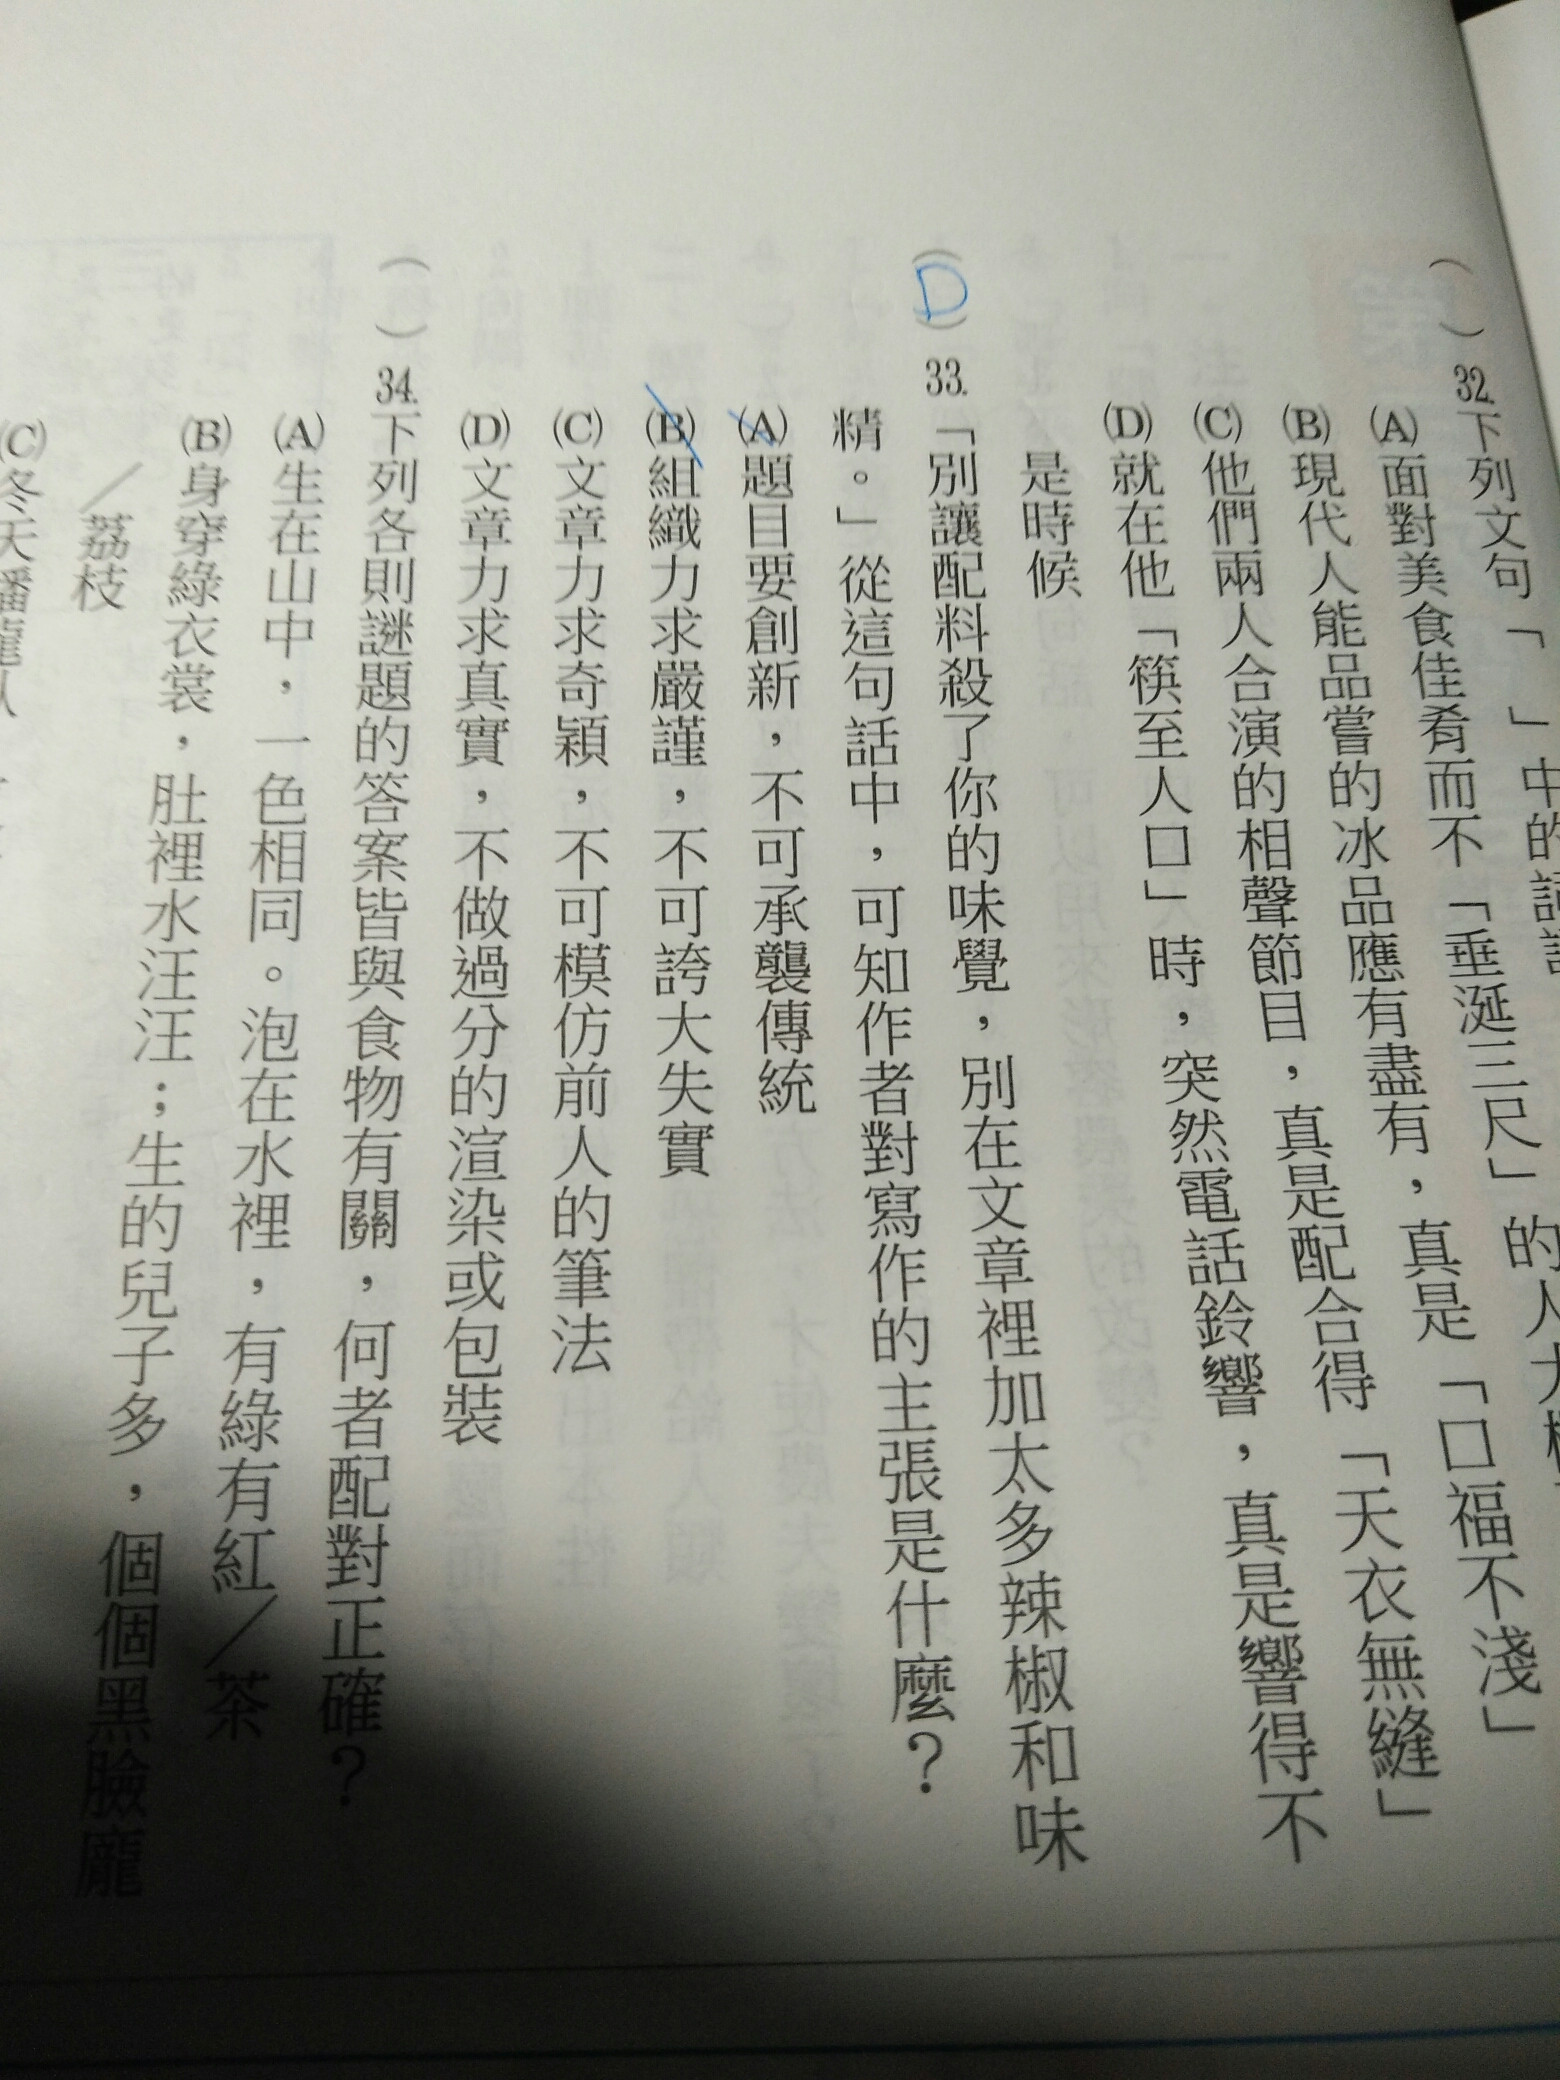 ( ) 32. 下列文句「 」中的
(A) 面對美食佳肴而不「垂涎三尺」的人
(B) 現代人能品嘗的冰品應有盡有，真是「口福不淺」
(C) 他們兩人合演的相聲節目，真是配合得「天衣無縫」
(D) 就在他「筷至人口」時，突然電話鈴響，真是響得不
是時候
(D) 33. 「別讓配料殺了你的味覺，別在文章裡加太多辣椒和味
精。」從這句話中，可知作者對寫作的主張是什麼？
(A) 題目要創新，不可承襲傳統
(B) 組織力求嚴謹，不可誇大失實
(C) 文章力求奇穎，不可模仿前人的筆法
(D) 文章力求真實，不做過分的渲染或包裝
( ) 34. 下列各則謎題的答案皆與食物有關，何者配對正確？
(A) 生在山中，一色相同。泡在水裡，有綠有紅／茶
(B) 身穿綠衣裳，肚裡水汪汪；生的兒子多，個個黑臉龐
／荔枝
(C) 冬天蟠龍臥